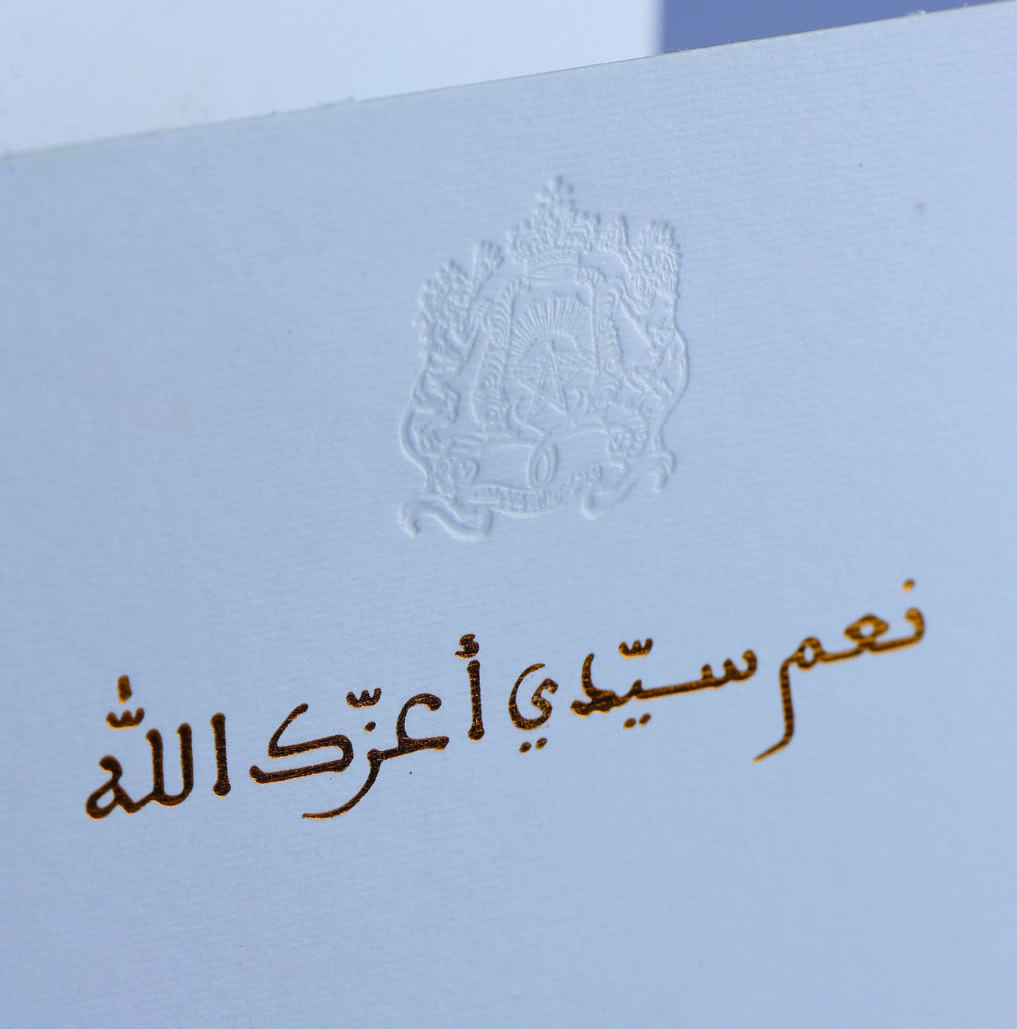 نعم سيّدي أعزّك اللّٰه